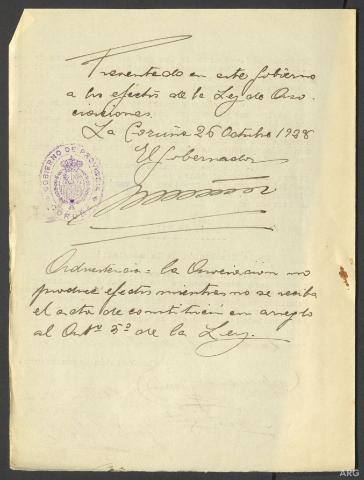 Presentado en este Gobierno
a los efectos de la Ley de Aso-
ciaciones.
La Coruña 26 Octubre 1928
El Gobernador
GOBIERNO DE PROVINCIA
CORUÑA
Advertencia = la Asociación no
produce efectos mientras no se reciba
el acta de constitución en arreglo
al Artº 5º de la Ley.
ARG